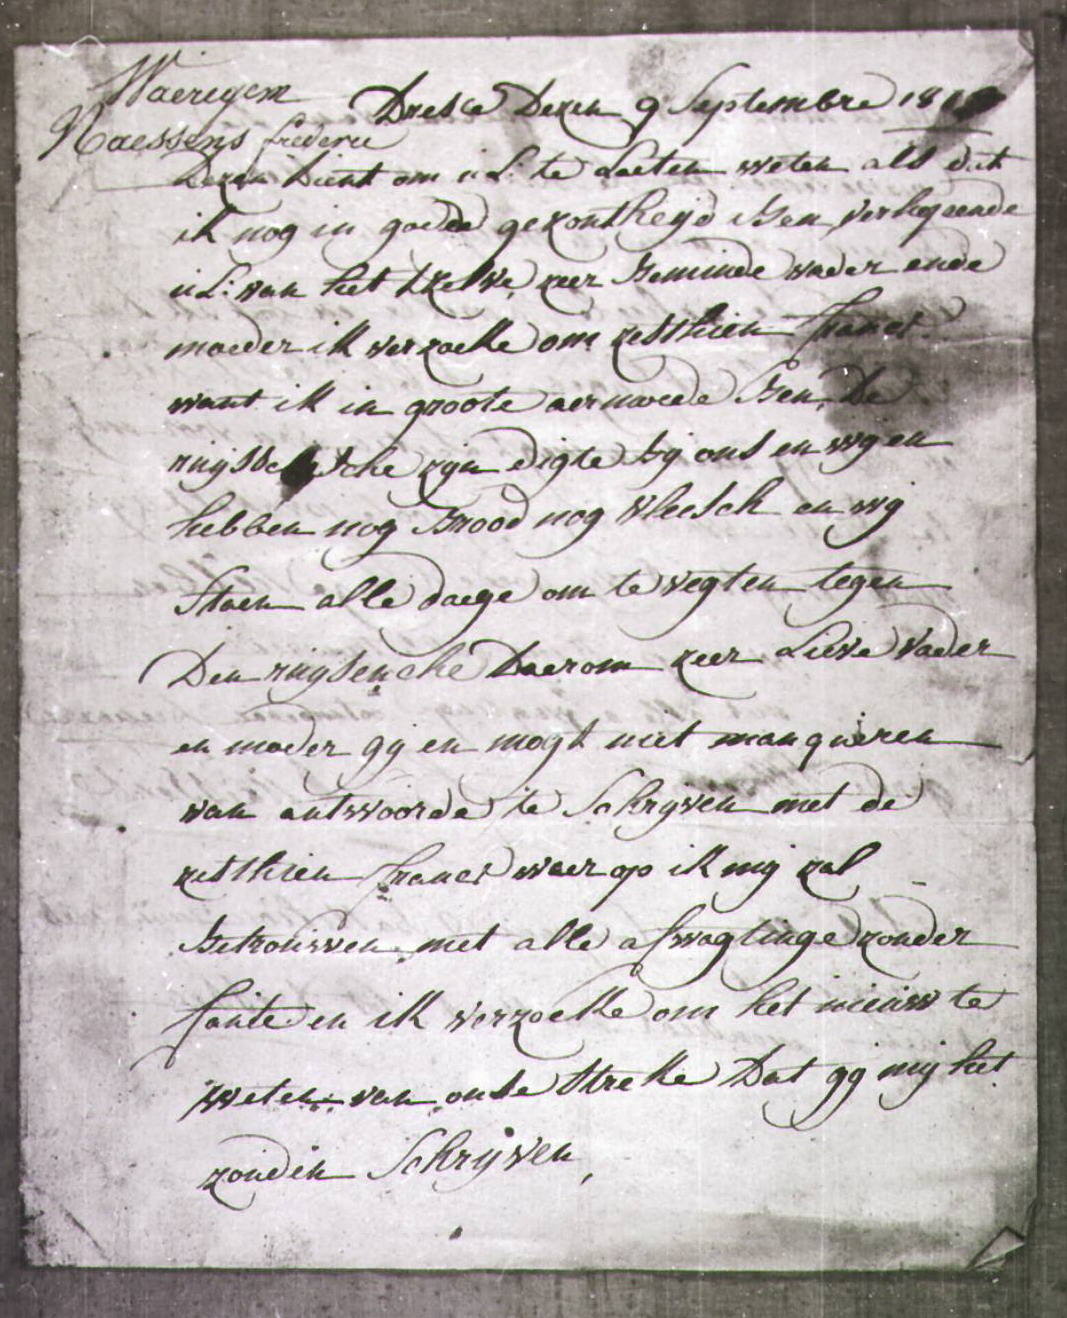 Waeregem
Naessens Liederic
Dresde Dezen 9 Septembre 181
Dezen Dient om uL: te Laeten weten als dat
ik nog in goede gezontheyd Ben verhopende
uL: van het zelve, zeer Beminde vader ende
moeder ik verzoeke om zesthien francs
want ik in groote aermoede Ben, De
zyn digte by ons en wy en
hebben nog Brood nog vleesch en wy
staen alle daege om te vegten tegen
Den ruysenche Daerom zeer Lieve vader
en moeder gy en mogt niet manqueren
van antwoorde te Schryven met de
zesthien francs waer op ik my zal
Betrouwen met alle afwagtinge zonder
faute en ik verzoeke om het nieuw te
weten van onse streke Dat gy my het
zouden Schryven,